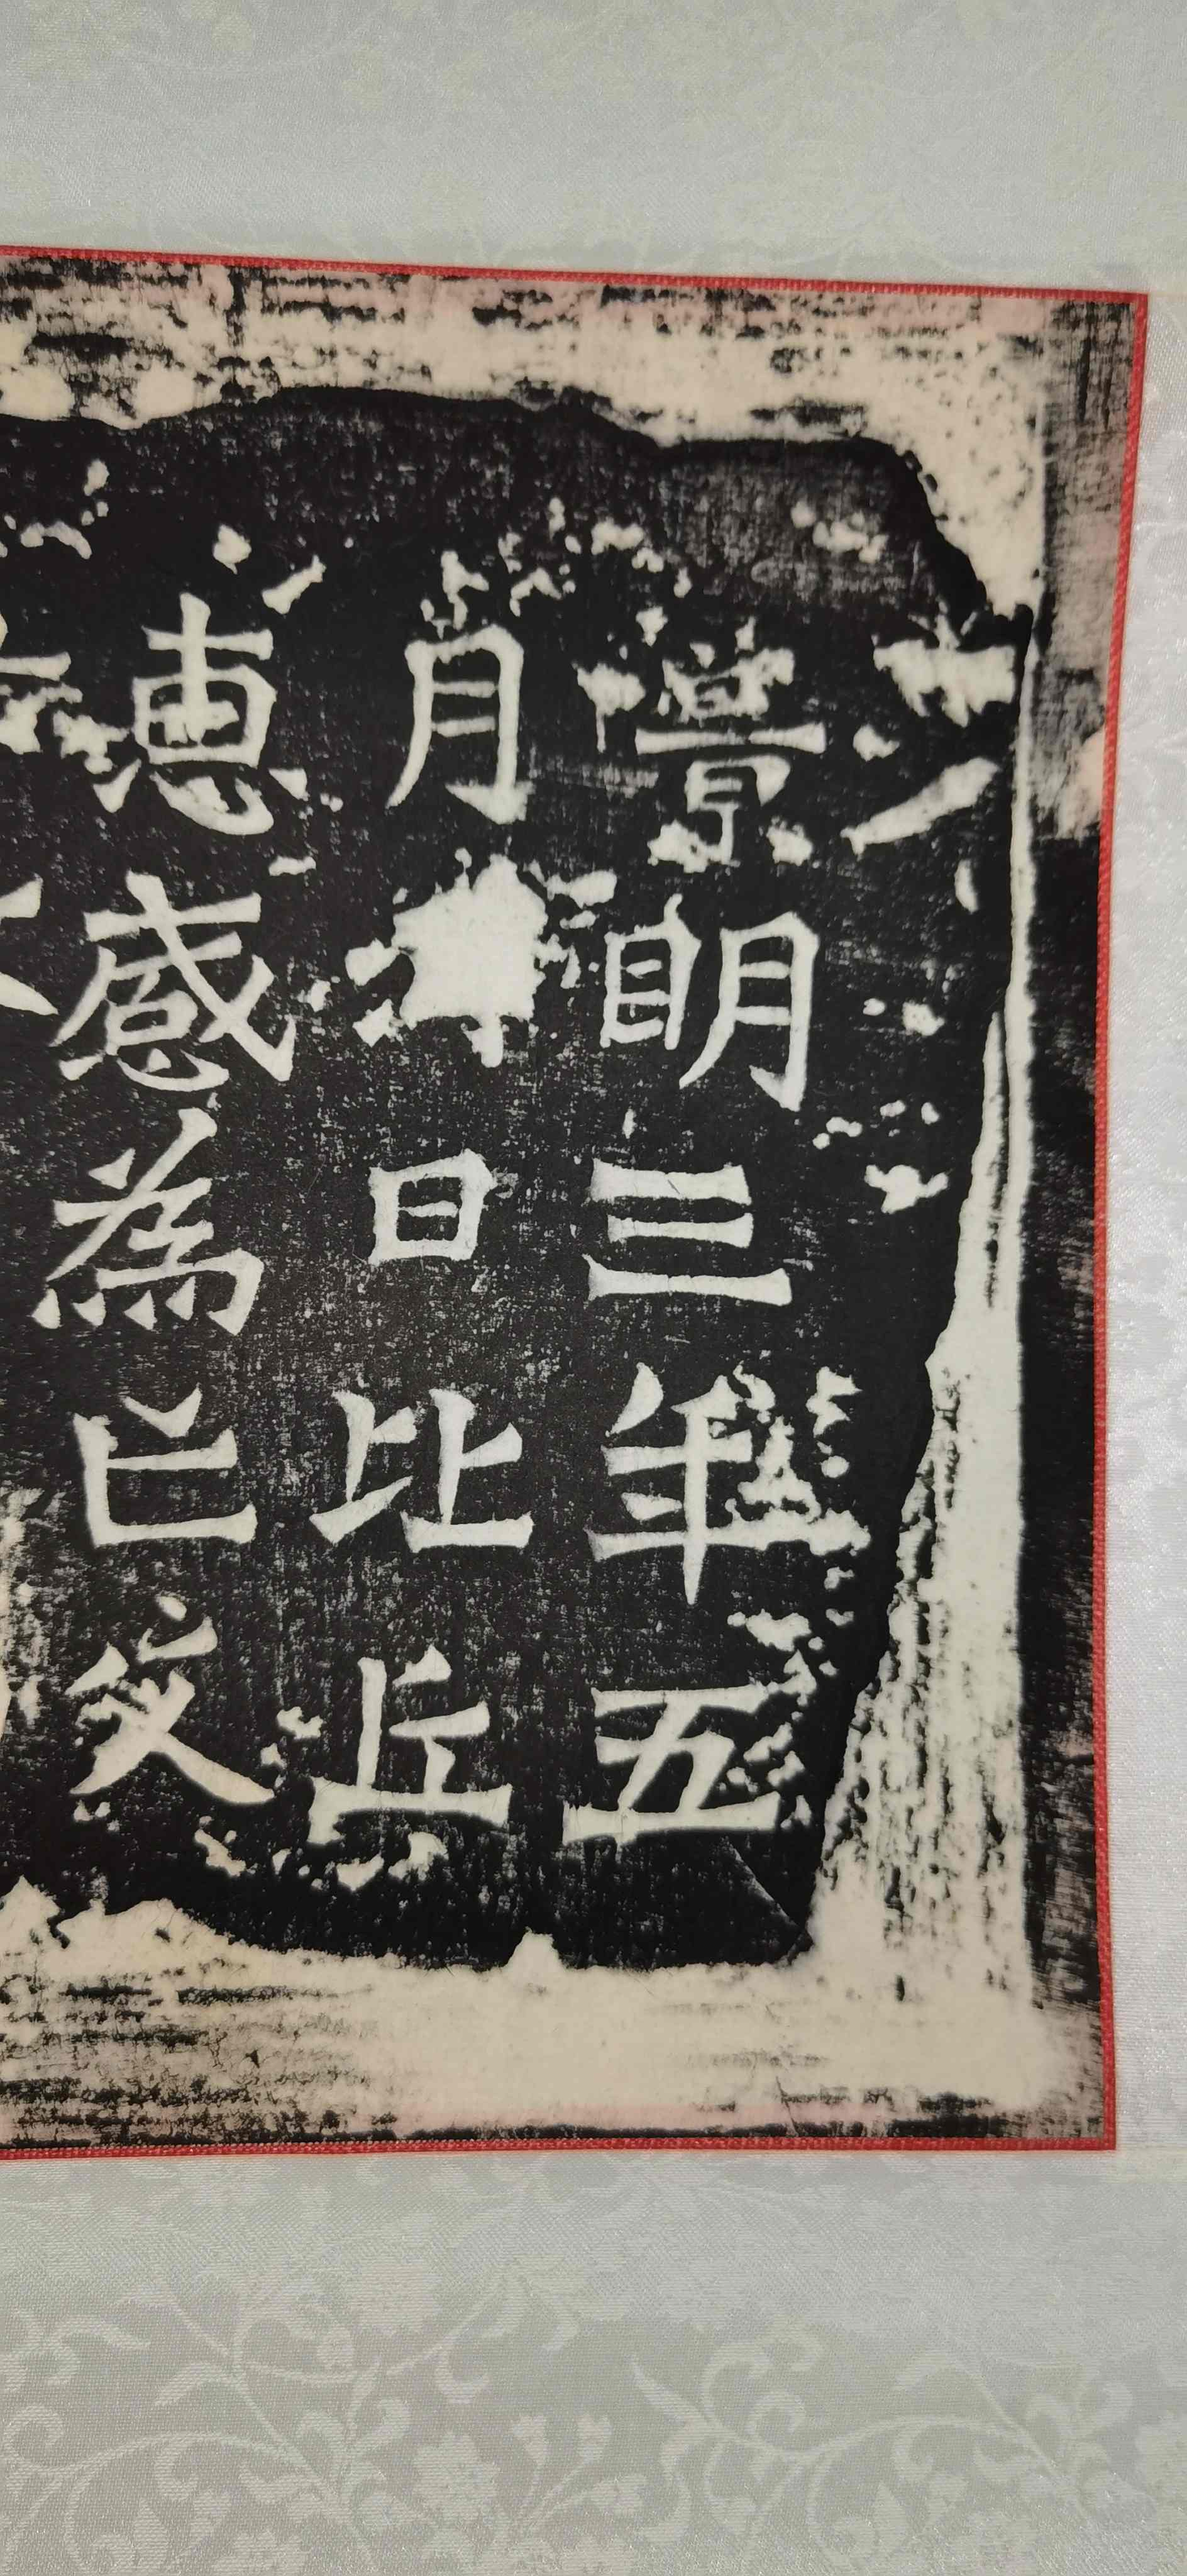 景明三年五
月 日比丘
惠感為亡父